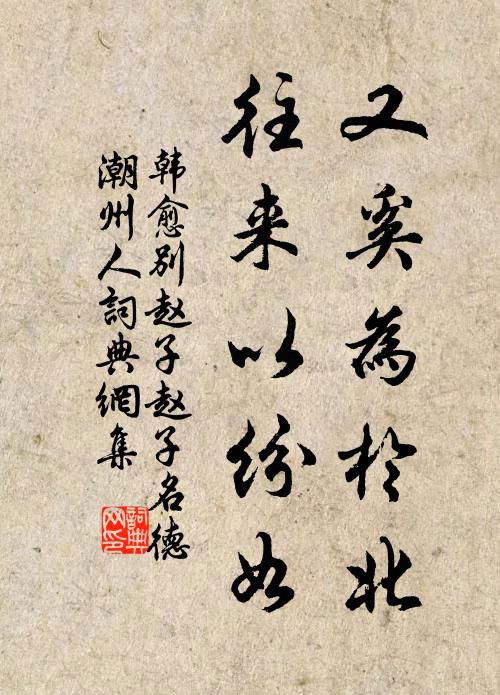 又奚為於北
往来以紛如
韩愈别赵子赵子名德
潮州人詞典網集
詞典
网印